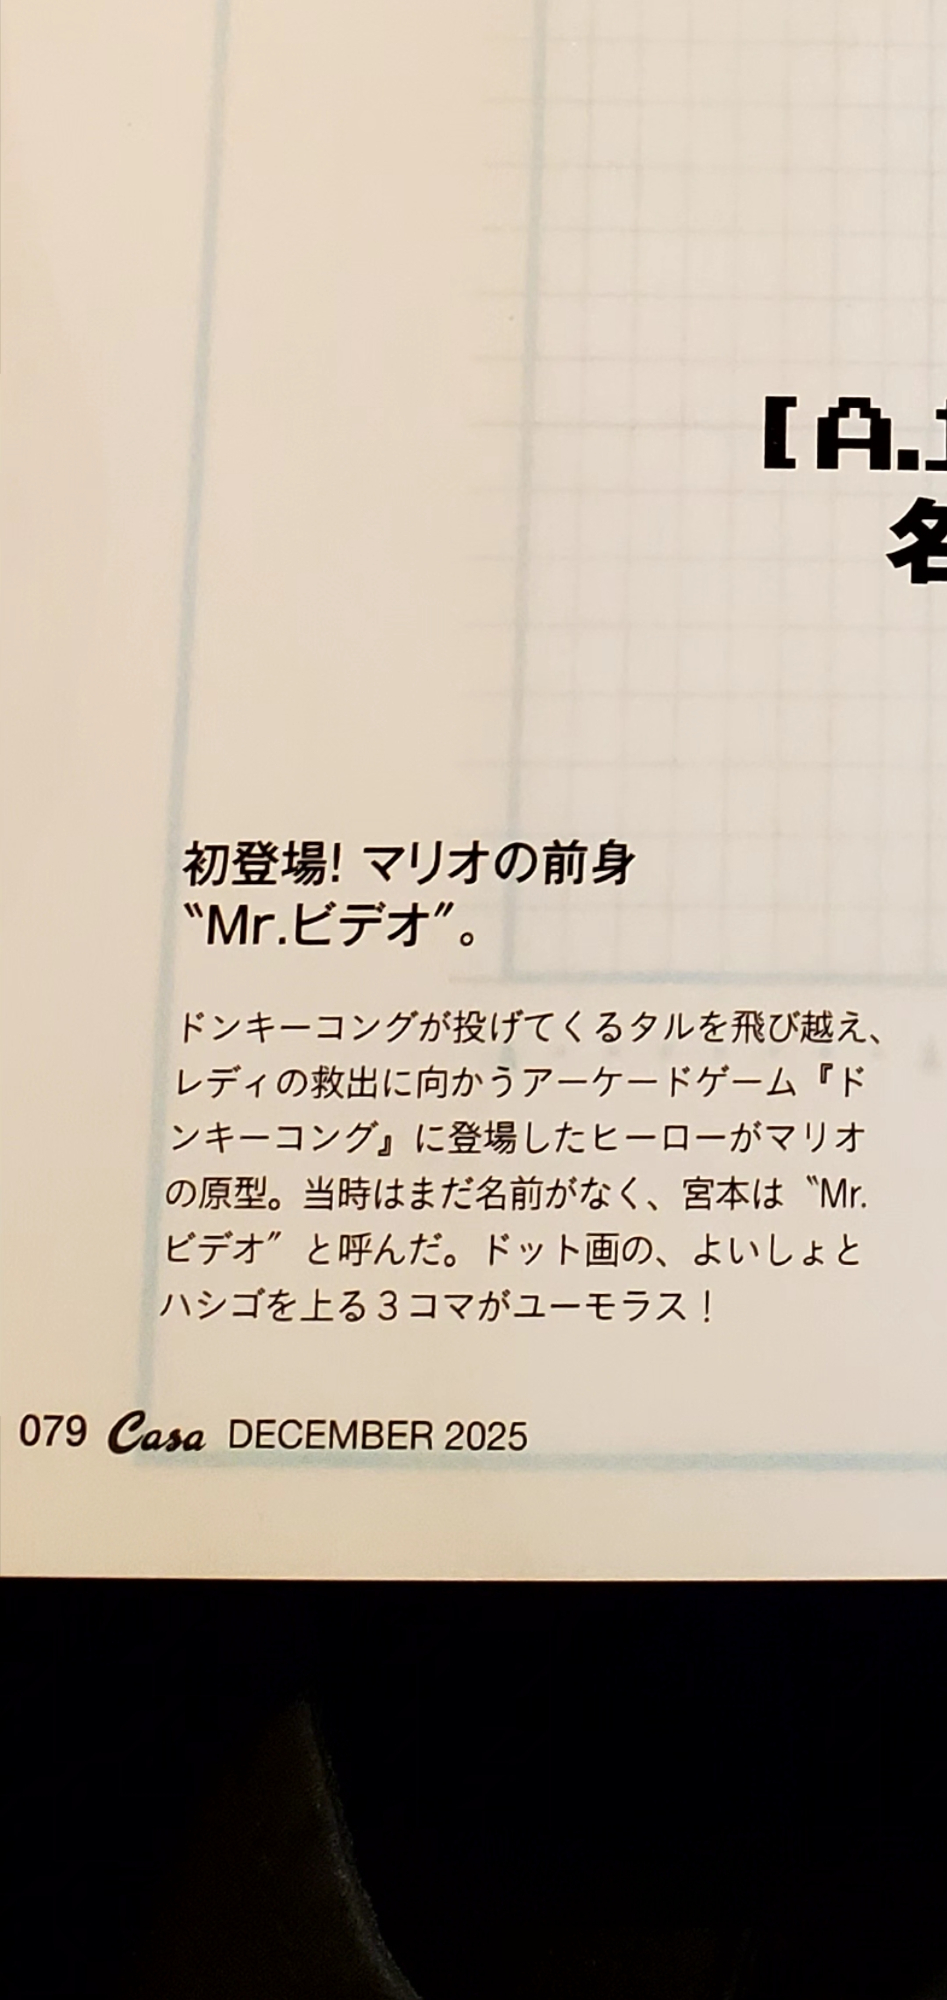 [A.
名
初登場! マリオの前身
〝Mr.ビデオ〟。
ドンキーコングが投げてくるタルを飛び越え、
レディの救出に向かうアーケードゲーム『ド
ンキーコング』に登場したヒーローがマリオ
の原型。当時はまだ名前がなく、宮本は〝Mr.
ビデオ〟と呼んだ。ドット画の、よいしょと
ハシゴを上る3コマがユーモラス!
079 Casa DECEMBER 2025